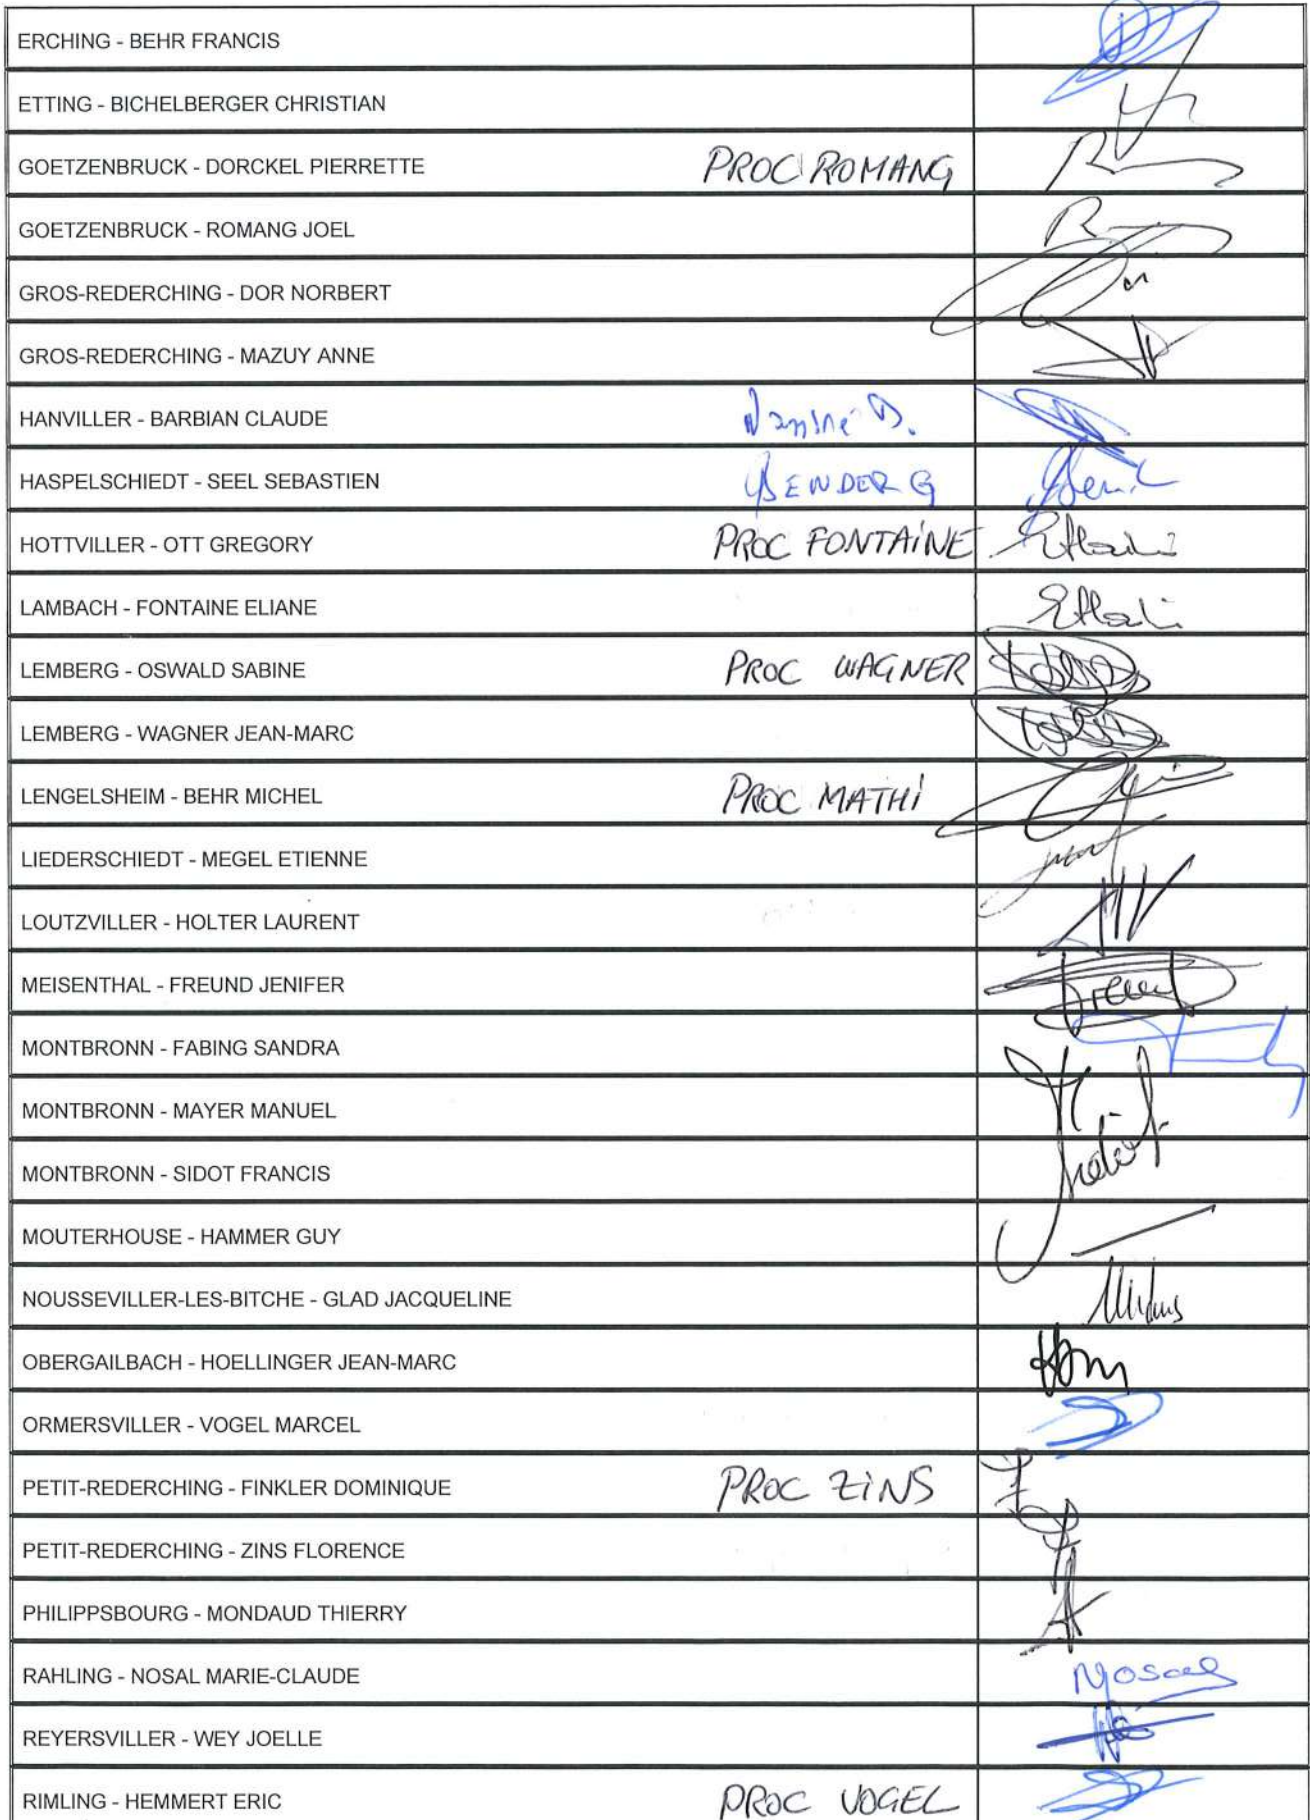 ERCHING - BEHR FRANCIS
ETTING - BICHELBERGER CHRISTIAN
GOETZENBRUCK - DORCKEL PIERRETTE PROC ROMANG
GOETZENBRUCK - ROMANG JOEL
GROS-REDERCHING - DOR NORBERT
GROS-REDERCHING - MAZUY ANNE
HANVILLER - BARBIAN CLAUDE
HASPELSCHIEDT - SEEL SEBASTIEN BENDER G
HOTTVILLER - OTT GREGORY PROC FONTAINE
LAMBACH - FONTAINE ELIANE
LEMBERG - OSWALD SABINE PROC WAGNER
LEMBERG - WAGNER JEAN-MARC
LENGELSHEIM - BEHR MICHEL PROC MATHI
LIEDERSCHIEDT - MEGEL ETIENNE
LOUTZVILLER - HOLTER LAURENT
MEISENTHAL - FREUND JENIFER
MONTBRONN - FABING SANDRA
MONTBRONN - MAYER MANUEL
MONTBRONN - SIDOT FRANCIS
MOUTERHOUSE - HAMMER GUY
NOUSSEVILLER-LES-BITCHE - GLAD JACQUELINE
OBERGAILBACH - HOELLINGER JEAN-MARC
ORMERSVILLER - VOGEL MARCEL
PETIT-REDERCHING - FINKLER DOMINIQUE PROC ZINS
PETIT-REDERCHING - ZINS FLORENCE
PHILIPPSBOURG - MONDAUD THIERRY
RAHLING - NOSAL MARIE-CLAUDE
REYERSVILLER - WEY JOELLE
RIMLING - HEMMERT ERIC PROC VOGEL